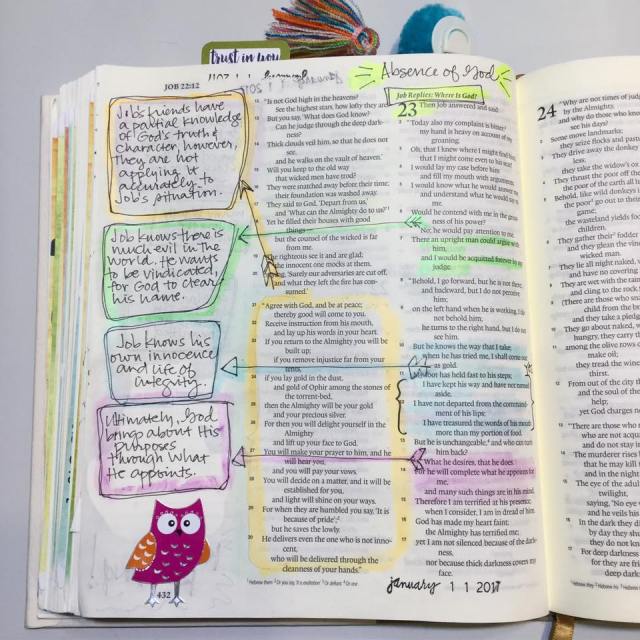 trust in you
JOB 22:12
January 1 1 201
Absence of God
Job's friends have
a partial knowledge
of God's truth &
character, however,
they are not
applying it
accurately to
Job's situation.
Job knows there is
much evil in the
world. He wants
to be vindicated,
for God to clear
his name.
Job knows his
own innocence
and life of
integrity.
Ultimately, God
brings about His
purposes
through what
He appoints.
432
12 "Is not God high in the heavens?
See the highest stars, how lofty they are
13 But you say, 'What does God know?
Can he judge through the deep dark-
ness?
14 Thick clouds veil him, so that he does not
see,
and he walks on the vault of heaven.'
15 Will you keep to the old way
that wicked men have trod?
16 They were snatched away before their time;
their foundation was washed away.
17 They said to God, 'Depart from us,'
and 'What can the Almighty do to us?'
18 Yet he filled their houses with good
things—
but the counsel of the wicked is far
from me.
19 The righteous see it and are glad;
the innocent one mocks at them,
20 saying, 'Surely our adversaries are cut off,
and what they left the fire has con-
sumed.'
21 "Agree with God, and be at peace;
thereby good will come to you.
22 Receive instruction from his mouth,
and lay up his words in your heart.
23 If you return to the Almighty you will be
built up;
if you remove injustice far from your
tents,
24 if you lay gold in the dust,
and gold of Ophir among the stones of
the torrent-bed,
25 then the Almighty will be your gold
and your precious silver.
26 For then you will delight yourself in the
Almighty
and lift up your face to God.
27 You will make your prayer to him, and he
will hear you,
and you will pay your vows.
28 You will decide on a matter, and it will be
established for you,
and light will shine on your ways.
29 For when they are humbled you say, 'It is
because of pride';
but he saves the lowly.
30 He delivers even the one who is not inno-
cent,
who will be delivered through the
cleanness of your hands."
Job Replies: Where Is God?
23 Then Job answered and said:
2 "Today also my complaint is bitter;
my hand is heavy on account of my
groaning.
3 Oh, that I knew where I might find
that I might come even to his seat
4 I would lay my case before him
and fill my mouth with arguments.
5 I would know what he would answer
and understand what he would say to
me.
6 Would he contend with me in the great-
ness of his power?
No; he would pay attention to me.
7 There an upright man could argue with
him,
and I would be acquitted forever by my
judge.
8 "Behold, I go forward, but he is not there,
and backward, but I do not perceive
him;
9 on the left hand when he is working, I do
not behold him;
he turns to the right hand, but I do not
see him.
10 But he knows the way that I take;
when he has tried me, I shall come out
as gold.
11 My foot has held fast to his steps;
I have kept his way and have not turned
aside.
12 I have not departed from the command-
ment of his lips;
I have treasured the words of his mouth
more than my portion of food.
13 But he is unchangeable, and who can turn
him back?
What he desires, that he does.
14 For he will complete what he appoints for
me,
and many such things are in his mind.
15 Therefore I am terrified at his presence;
when I consider, I am in dread of him.
16 God has made my heart faint;
the Almighty has terrified me;
17 yet I am not silenced because of the dark-
ness,
nor because thick darkness covers my
face.
January 1 1 2017
24 "Why are not times of judg
by the Almighty,
and why do those who know
see his days?
2 Some move landmarks;
they seize flocks and pastu
3 They drive away the donkey
less;
they take the widow's ox
4 They thrust the poor off the
the poor of the earth a
5 Behold, like wild donkeys i
the poor go out to their
game;
the wasteland yields foo
children.
6 They gather their fodder
and they glean the viney
wicked man.
7 They lie all night naked, w
and have no covering
8 They are wet with the rain
and cling to the rock
9 (There are those who sn
child from the br
and they take a pledg
10 They go about naked, w
hungry, they carry th
11 among the olive rows o
make oil;
they tread the wine
thirst.
12 From out of the city th
and the soul of the
help;
yet God charges no
13 "There are those who
who are not acqua
and do not stay in
14 The murderer rises b
that he may kill t
and in the night
15 The eye of the adu
twilight,
saying, 'No eye w
and he veils his
16 In the dark they di
by day they shu
they do not kn
17 For deep darkness
for they are fri
deep dark